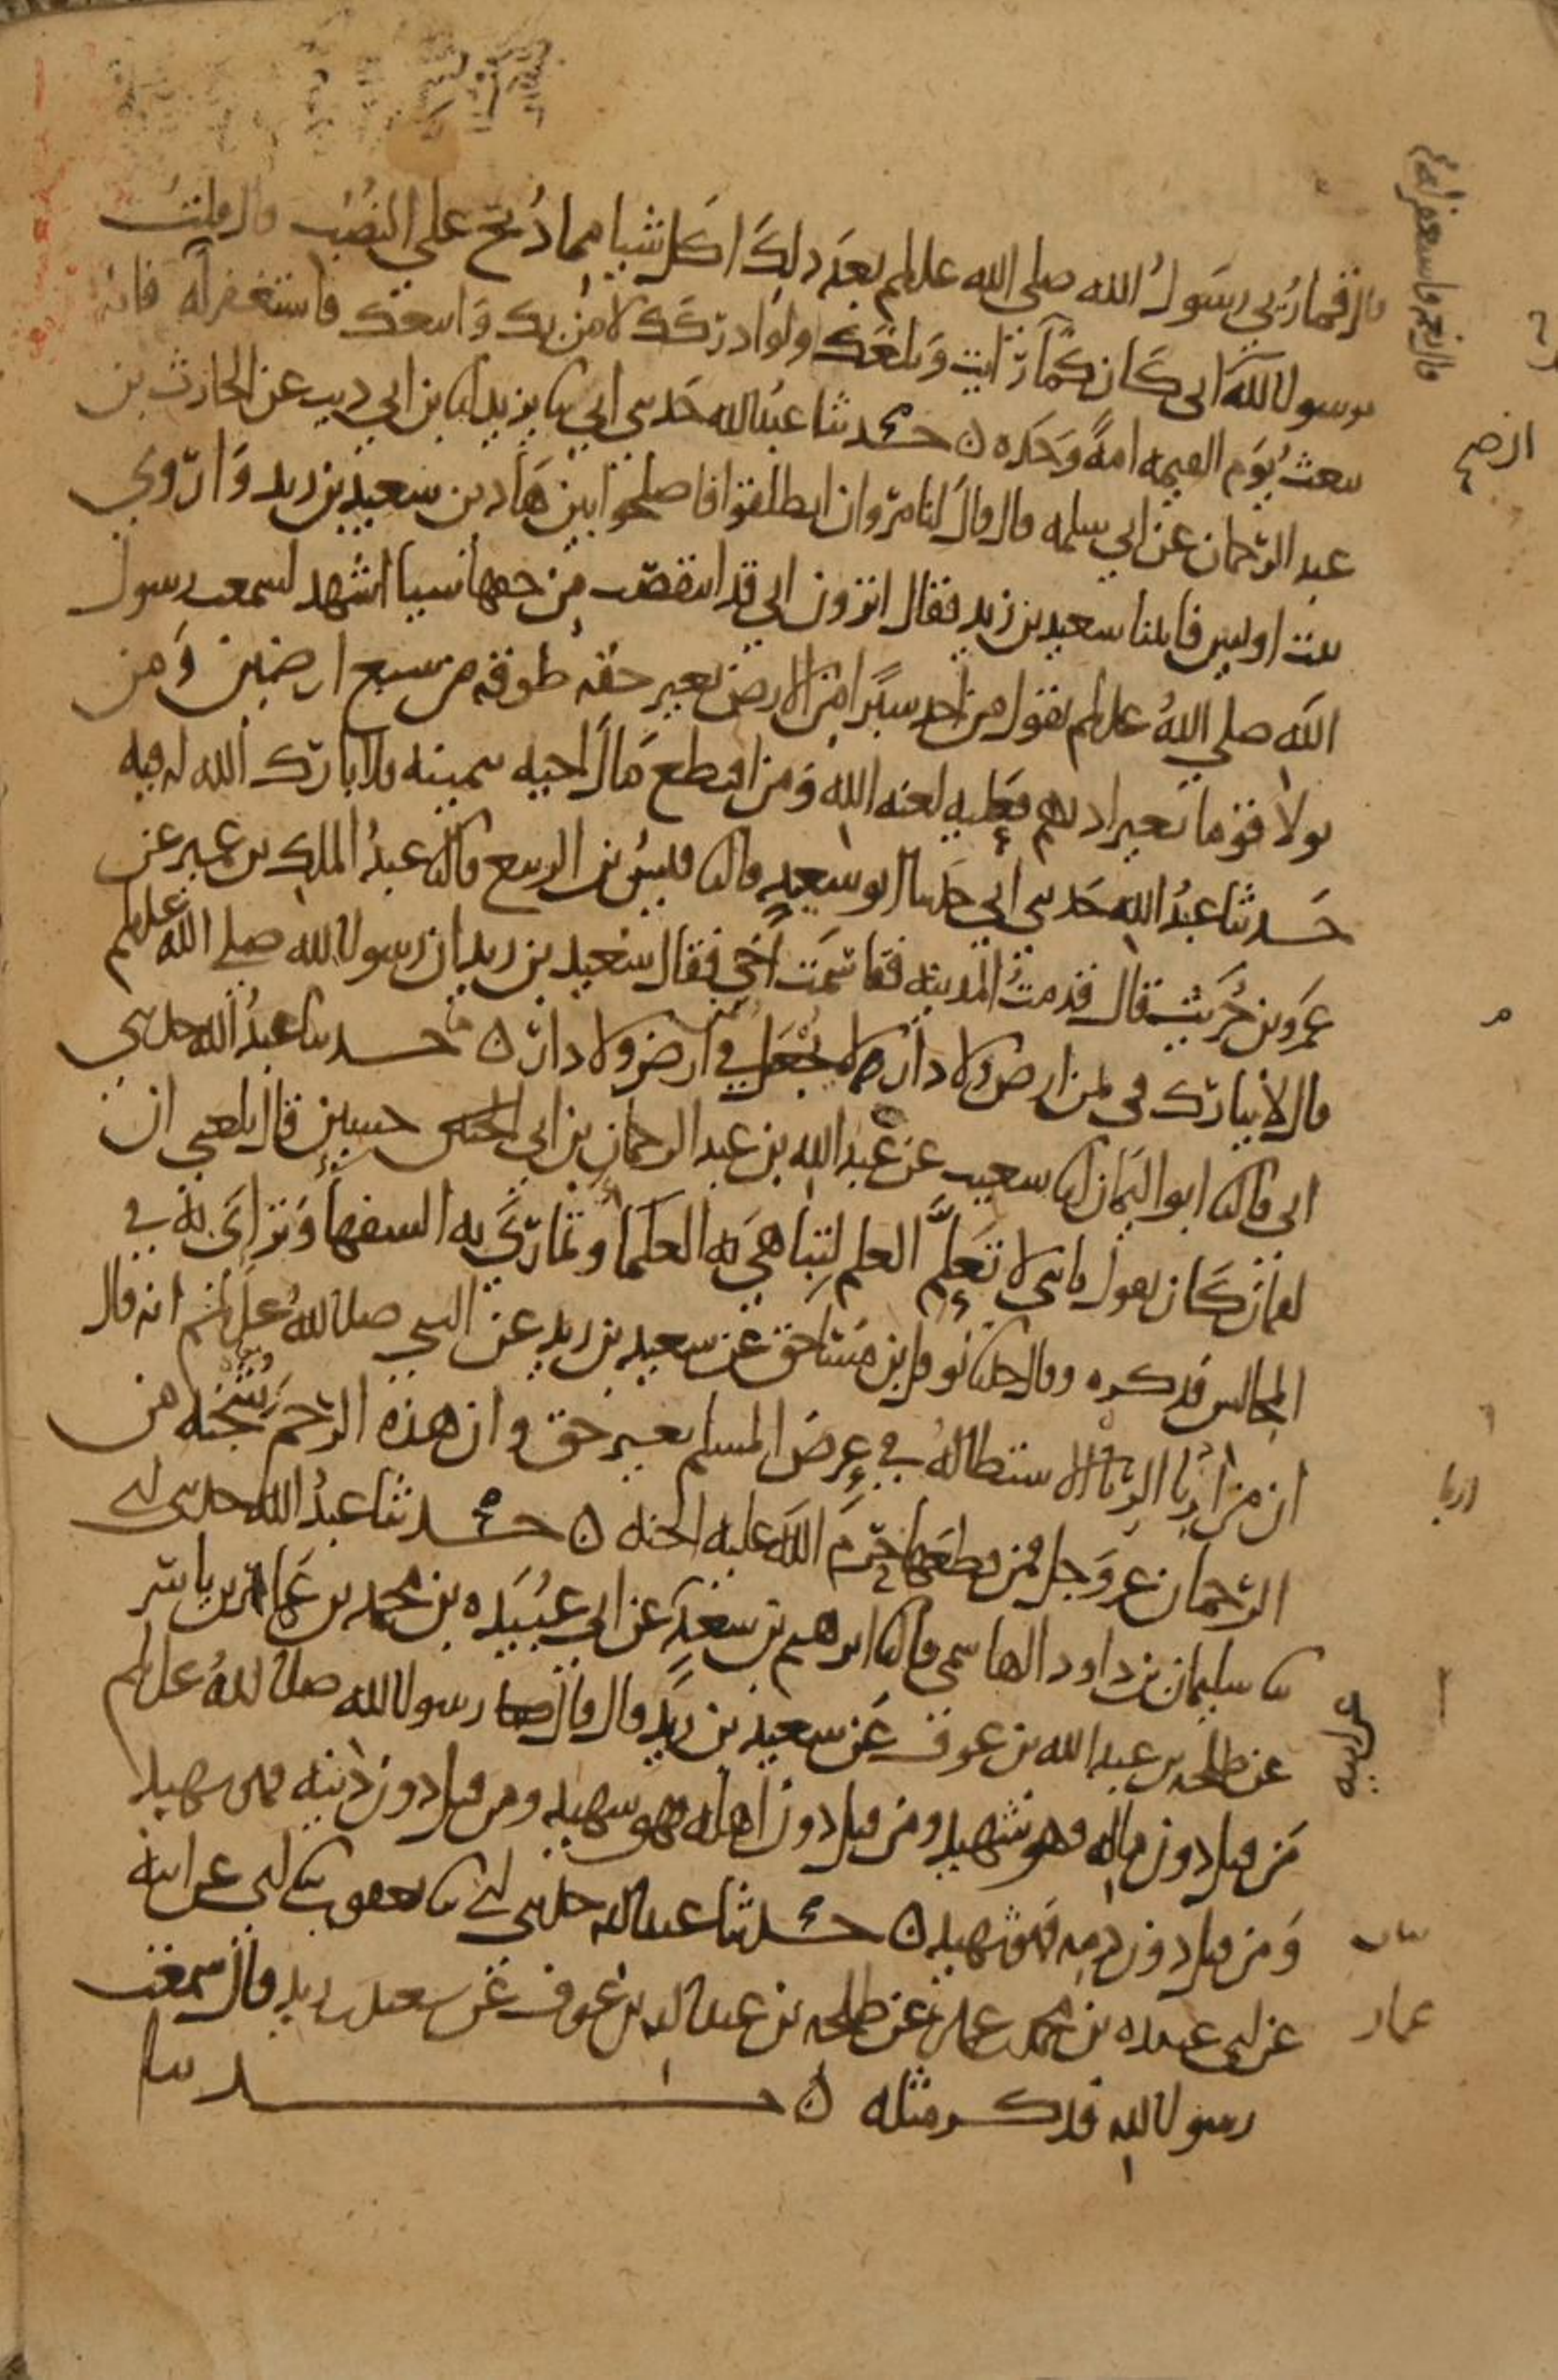 قال فما رُئي رسولُ الله صلى الله علىلم بعد ذلك اكل شيا مما ذُبح على النُصُب قال قلتُ
يرسول الله ان ابى كان كما رَايت وبلغك ولو ادركك لامن بك واتبعك فاستغفر له فانه
يبعث يوم القيمه امةً وحده ن حدثنا عبد الله حدثني ابي ثنا يزيد انا ابن ابي ذيب عن الحارث بن
عبد الرحمان عن ابي سلمه قال قال لنا مروان انطلقوا فاصلحوا بين هاذين سعيد بن زيد وَاروى
بنت اويس فاتينا سعيد بن زيد فقال اترون اني قد انتقصت من حقها شيا اشهد لسمعت رسول
الله صلى اللهُ علىلم يقول من اخذ شبرًا من الارض بغير حقه طوقه من سبع ارضين وَمن
تولا قوما بغير اذنهم فعليه لعنه الله وَمن اقتطع مال اخيه بيمينه فلا بارك الله له فيه
حدثنا عبدُ الله حدثني ابي حدثنا ابو سعيد قال ثنا قيسُ بن الربيع قال ثنا عبدُ الملك بن عمير عن
عمرو بن حُرَيث قال قدمتُ المدينه فقاسَمت اخي فقال سعيد بن زيد ان رسول الله صلى الله علىلم
قال لا يبارك في ثمن ارض ولا دار لا يُجعل في ارض ولا دار ن حدثنا عبدُ الله حدثني
ابي قال ثنا ابو اليمان انا شعيب عن عبد الله بن عبد الرحمان بن ابي حسين قال بلغني ان
لقمان كان يقول يا بني لا تعلّم العلم لتباهي به العلما وتماري به السفها وَترائي به في
المجالس فذكره وقال حدثنا نوفل بن مساحق عن سعيد بن زيد عن النبي صلى اللهُ علىلم انه قال
ان من اربا الربا الاستطالهُ في عِرض المسلم بغير حق وان هذه الرحم شجنه من
الرحمان عز وَجل فمن قطعها حرّم الله عليه الجنه ن حدثنا عبدُ الله حدثني ابي
ثنا سليمان بن داود الهاشمي قال ثنا ابرهيم بن سعد عن ابي عُبَيده بن محمد بن عمار بن ياسر
عن طلحه بن عبد الله بن عوف عن سعيد بن زيد قال قال رسول الله صلى اللهُ علىلم
مَن قتل دون ماله فهو شهيد ومن قتل دون اهله فهو شهيد ومن قتل دون دينه فهو شهيد
وَمن قتل دون دمه فهو شهيد ن حدثنا عبد الله حدثني ابي ثنا يعقوب ثنا ابي عن ابيه
عن ابي عبيده بن محمد بن عمار عن طلحه بن عبد الله بن عوف عن سعيد بن زيد قال سمعت
رسول الله فذكر مثله ن حدثنا
قال نعم فاستغفر له
ارضيـ
اربا
عمار